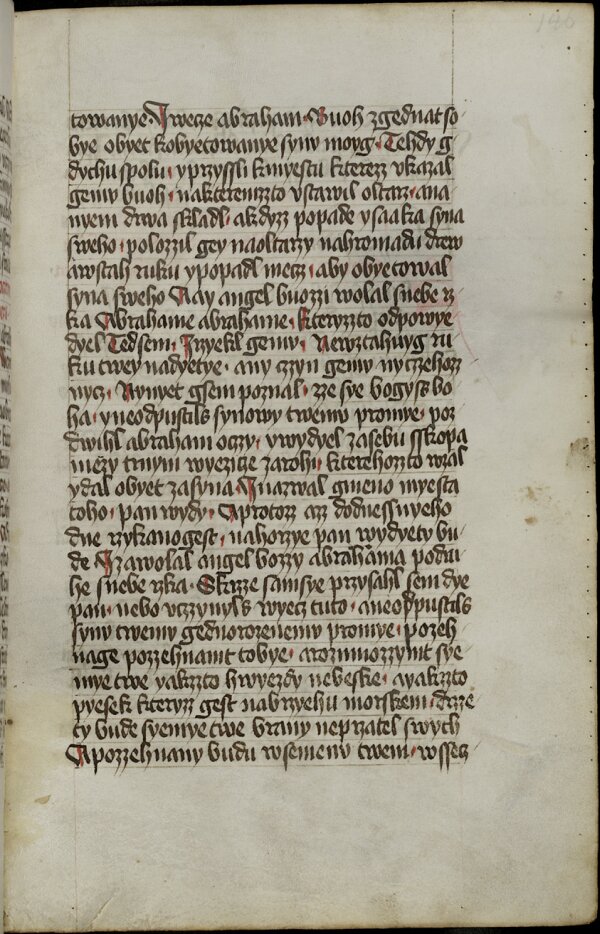 146
towanye Iwecze abraham · Buoh zgednat so
bye obyet kobyetowanye synv moyg · Tehdy g
dychu spolu · yprzyssli kmyestu kterezz vkazal
gemv buoh · nakteremzzto vstawil oltarz · ana
nyem drwa skladl · akdyzz popade ysaaka syna
sweho · polozzil gey naoltarzy nahromadu drew
awstah ruku ypopadl mecz · aby obyetowal
syna sweho Aay angel buozzi wolal snebe rz
ka Abrahame abrahame · kteryzzto odpowye
dyel Tedsem · Irzyekl gemv · Newztahuyg ru
ku twey nadyetye · any czzyn gemv nyczzehozz
nycz · Nynyet gsem poznal · zze sye bogyss bo
ha · yneodpustils synowy twemv promye · poz
dwihl abraham oczy · vwydyel zasebu sskopa
mezy trnym wyezicze zarohi · kterehozzto wzal
ydal obyet zasyna Inazwal gmeno myesta
toho · pan wydy · Aprotozz azz dodnessnyeho
dne rzykanogest · nahorzye pan wydyety bu
de Izawolal angel bozzy abrahama podru
he snebe rzka · Skrzze samsye przysahl sem dye
pan · nebo vczynyls wyecz tuto · aneodpustils
synv twemv gednorozenemv promye · pozeh
nage pozzehnamt tobye · arozmnozzymt sye
mye twe yakzzto hwyezdy nebeske · ayakzzto
pyesek kteryzz gest nabrzyehu morskem · drzze
ty bude syemye twe brany neprzatel swych
Apozzehnany budu wsemenv twem · wssecz